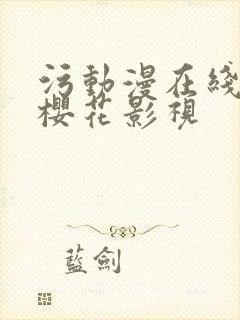 污動漫在綫
櫻花影視
藍劍